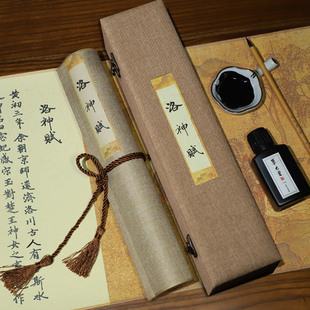 洛神賦
黃初三年余朝京師還濟洛川古人有斯水
之神名曰宓妃感宋玉對楚王神女之事作
洛神賦
洛神賦